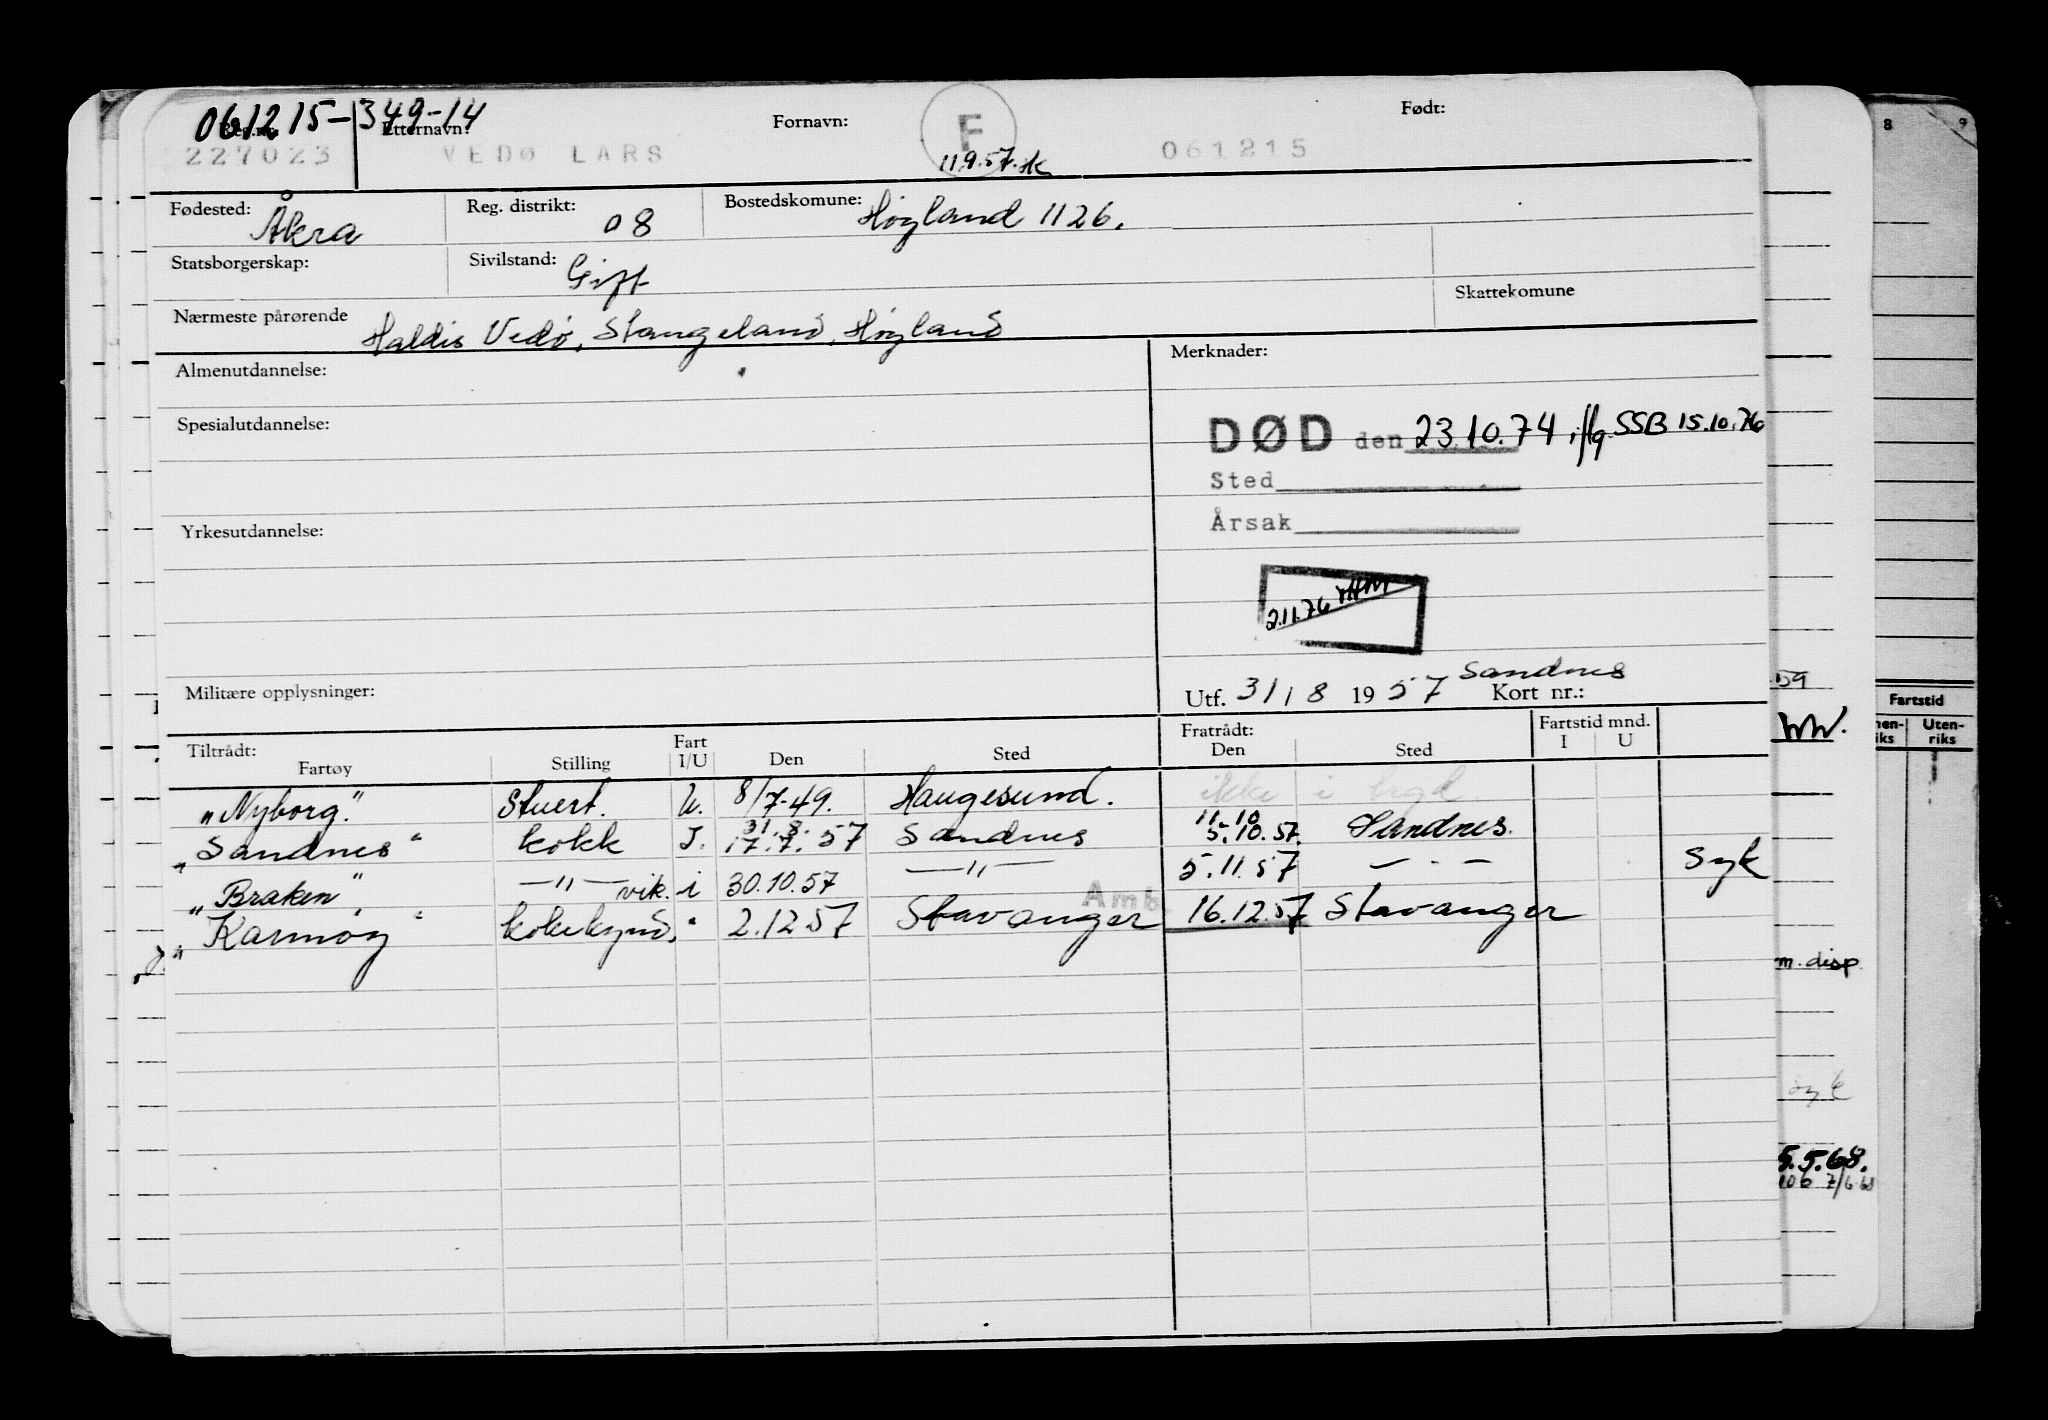 061215-349-14
Reg.nr. Etternavn: Fornavn: F Født:
227023 VEDØ LARS 11.9.57. 061215
Fødested: Åkra Reg. distrikt: 08 Bostedskomune: Høyland 1126.
Statsborgerskap: Sivilstand: Gift
Nærmeste pårørende Haldis Vedø, Stangeland, Høyland Skattekomune
Almenutdannelse: Merknader:
Spesialutdannelse: DØD den 23.10.74 iflg. SSB 15.10.76
Sted
Årsak
Yrkesutdannelse:
2.11.76
Militære opplysninger: Utf. 31/8 1957 Sandnes Kort nr.:
Tiltrådt: Fartøy Stilling Fart I/U Den Sted Fratrådt: Den Sted Fartstid mnd. I U
"Nyborg." Stuert. U. 8/7-49. Haugesund. ikke i brgd
"Sandnes" kokk I. 31.8. 17.7.57 Sandnes 11.10 5.10.57. Sandnes.
"Braken" —"— vik. i 30.10.57 —"— 5.11.57 — · — Syk
"Karmøy" kokekynd. " 2.12.57 Stavanger Amb. 16.12.57 Stavanger
8 9
59
Fartstid
Uten-
riks
WW.
m. disp.
syk
5.5.68.